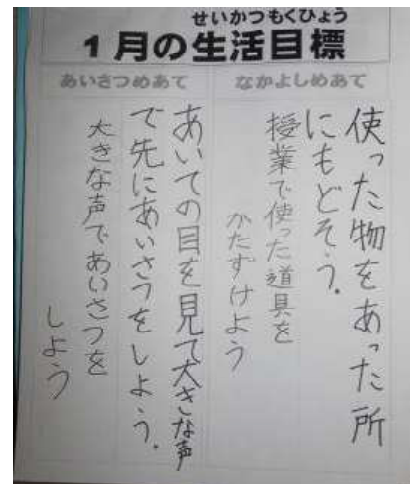 せいかつもくひょう
1月の生活目標
なかよしめあて
使った物をあった所
にもどそう。
授業で使った道具を
かたずけよう
あいさつめあて
あいての目を見て大きな声
で先にあいさつをしよう。
大きな声であいさつを
しよう